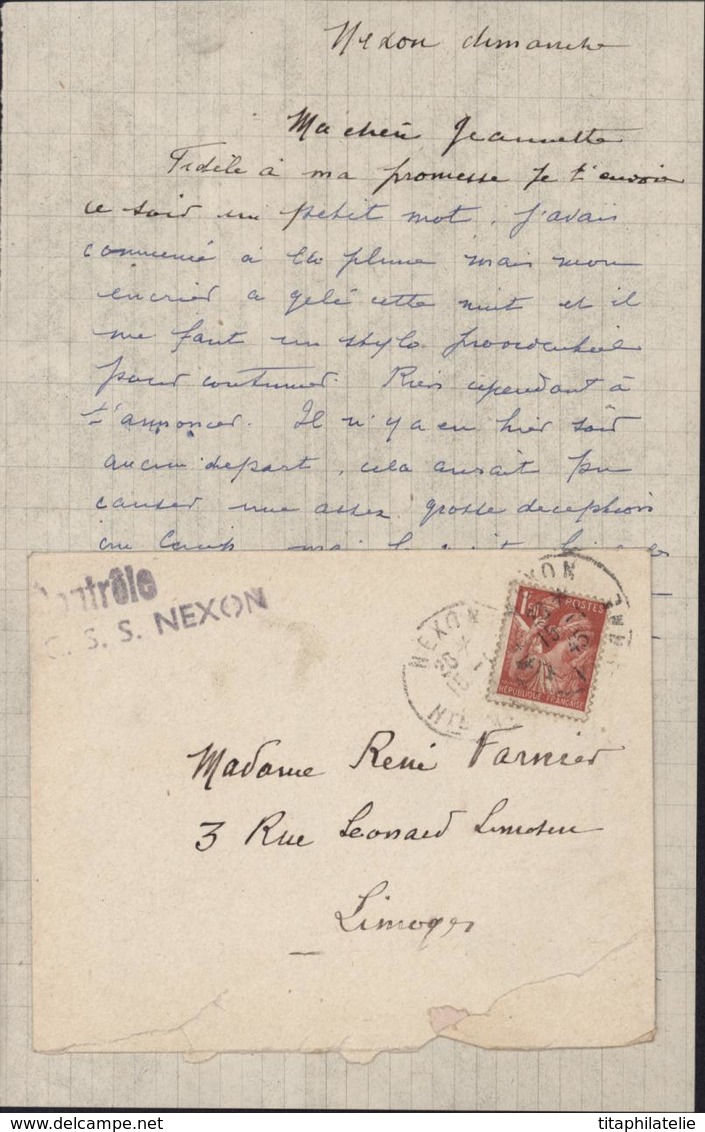 Nexon dimanche
Ma chère Jeannette
Fidèle à ma promesse je t'envoie
ce soir un petit mot. J'avais
commencé à la plume mais mon
encrier a gelé cette nuit et il
me faut un stylo providentiel
pour continuer. Rien cependant à
t'annoncer. Il n'y a eu hier soir
aucun départ, cela aurait pu
causer une assez grosse deception
au Camp mais
Contrôle
C. S. S. NEXON
NEXON
NEXON
1F50
POSTES
RÉPUBLIQUE FRANÇAISE
Madame René Varnier
3 Rue Leonard Limosin
Limoges
titaphilatelie